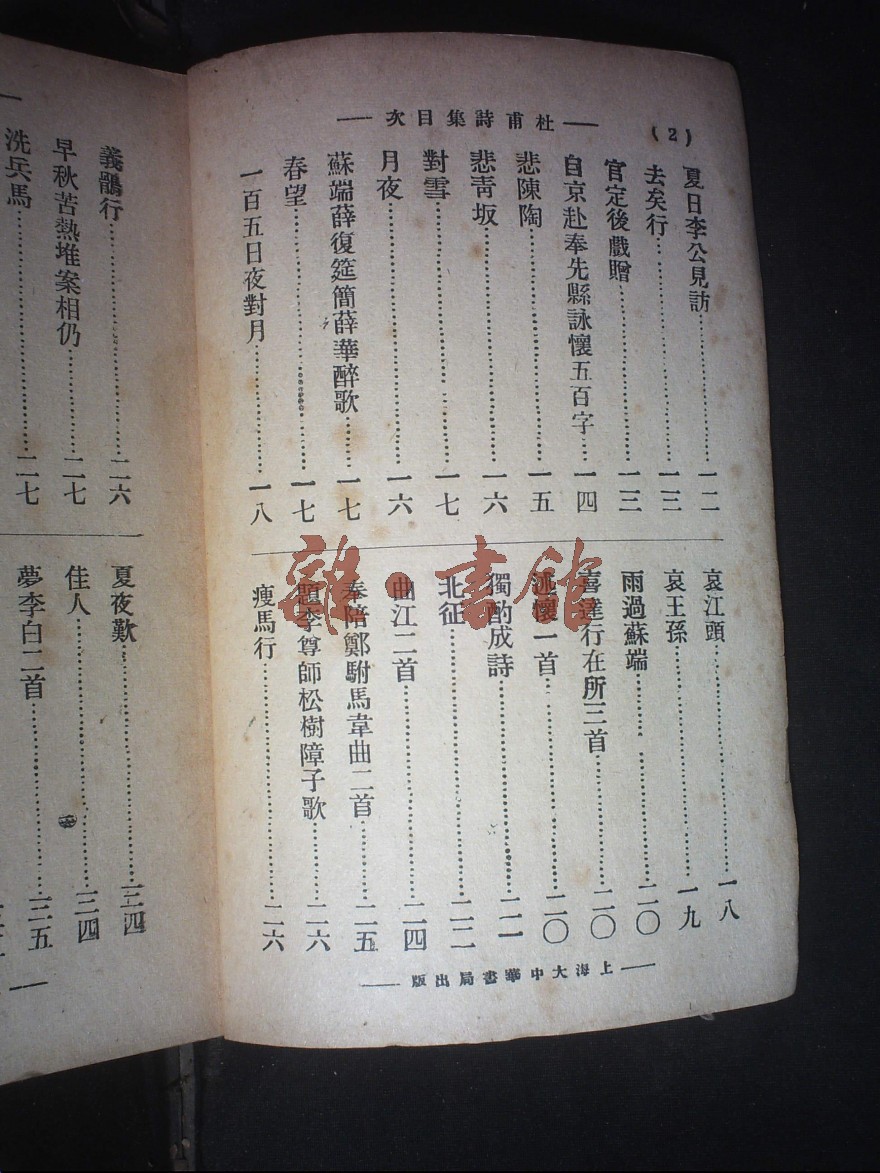 (2)
杜甫詩集目次
夏日李公見訪……一二
去矣行……一三
官定後戲贈……一三
自京赴奉先縣詠懷五百字……一四
悲陳陶……一五
悲靑坂……一六
對雪……一七
月夜……一六
蘇端薛復筵簡薛華醉歌……一七
春望……一七
一百五日夜對月……一八
哀江頭……一八
哀王孫……一九
雨過蘇端……二〇
喜達行在所三首……二〇
述懷一首……二〇
獨酌成詩……二一
北征……二二
曲江二首……二四
奉陪鄭駙馬韋曲二首……二五
題李尊師松樹障子歌……二六
瘦馬行……二六
上海大中華書局出版
義鶻行……二六
早秋苦熱堆案相仍……二七
洗兵馬……二七
夏夜歎……三四
佳人……三四
夢李白二首……三五
龍·書館